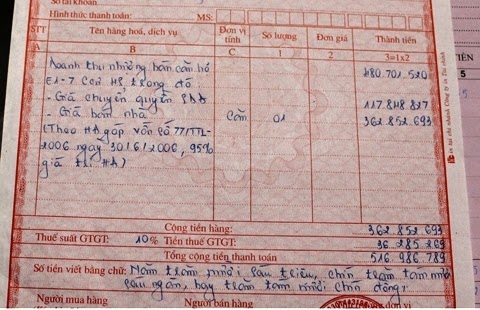 Số tài khoản
Hình thức thanh toán: MS:
STT Tên hàng hoá, dịch vụ Đơn vị tính Số lượng Đơn giá Thành tiền
A B C 1 2 3=1x2
Doanh thu nhượng bán căn hộ 480.701.520
E1-7 trong đó
- Giá chuyển quyền SDĐ 117.848.827
- Giá bán nhà Căn 01 362.852.693
(Theo HĐ góp vốn số 77/TTL-
2006 ngày 30/6/2006, 95%
giá trị HĐ)
Cộng tiền hàng: 362.852.693
Thuế suất GTGT: 10% Tiền thuế GTGT: 36.285.269
Tổng cộng tiền thanh toán 516.986.789
Số tiền viết bằng chữ: Năm trăm mười sáu triệu, chín trăm tám mươi
sáu ngàn, bảy trăm tám mươi chín đồng.
Người mua hàng Người bán hàng
TIỀN
5